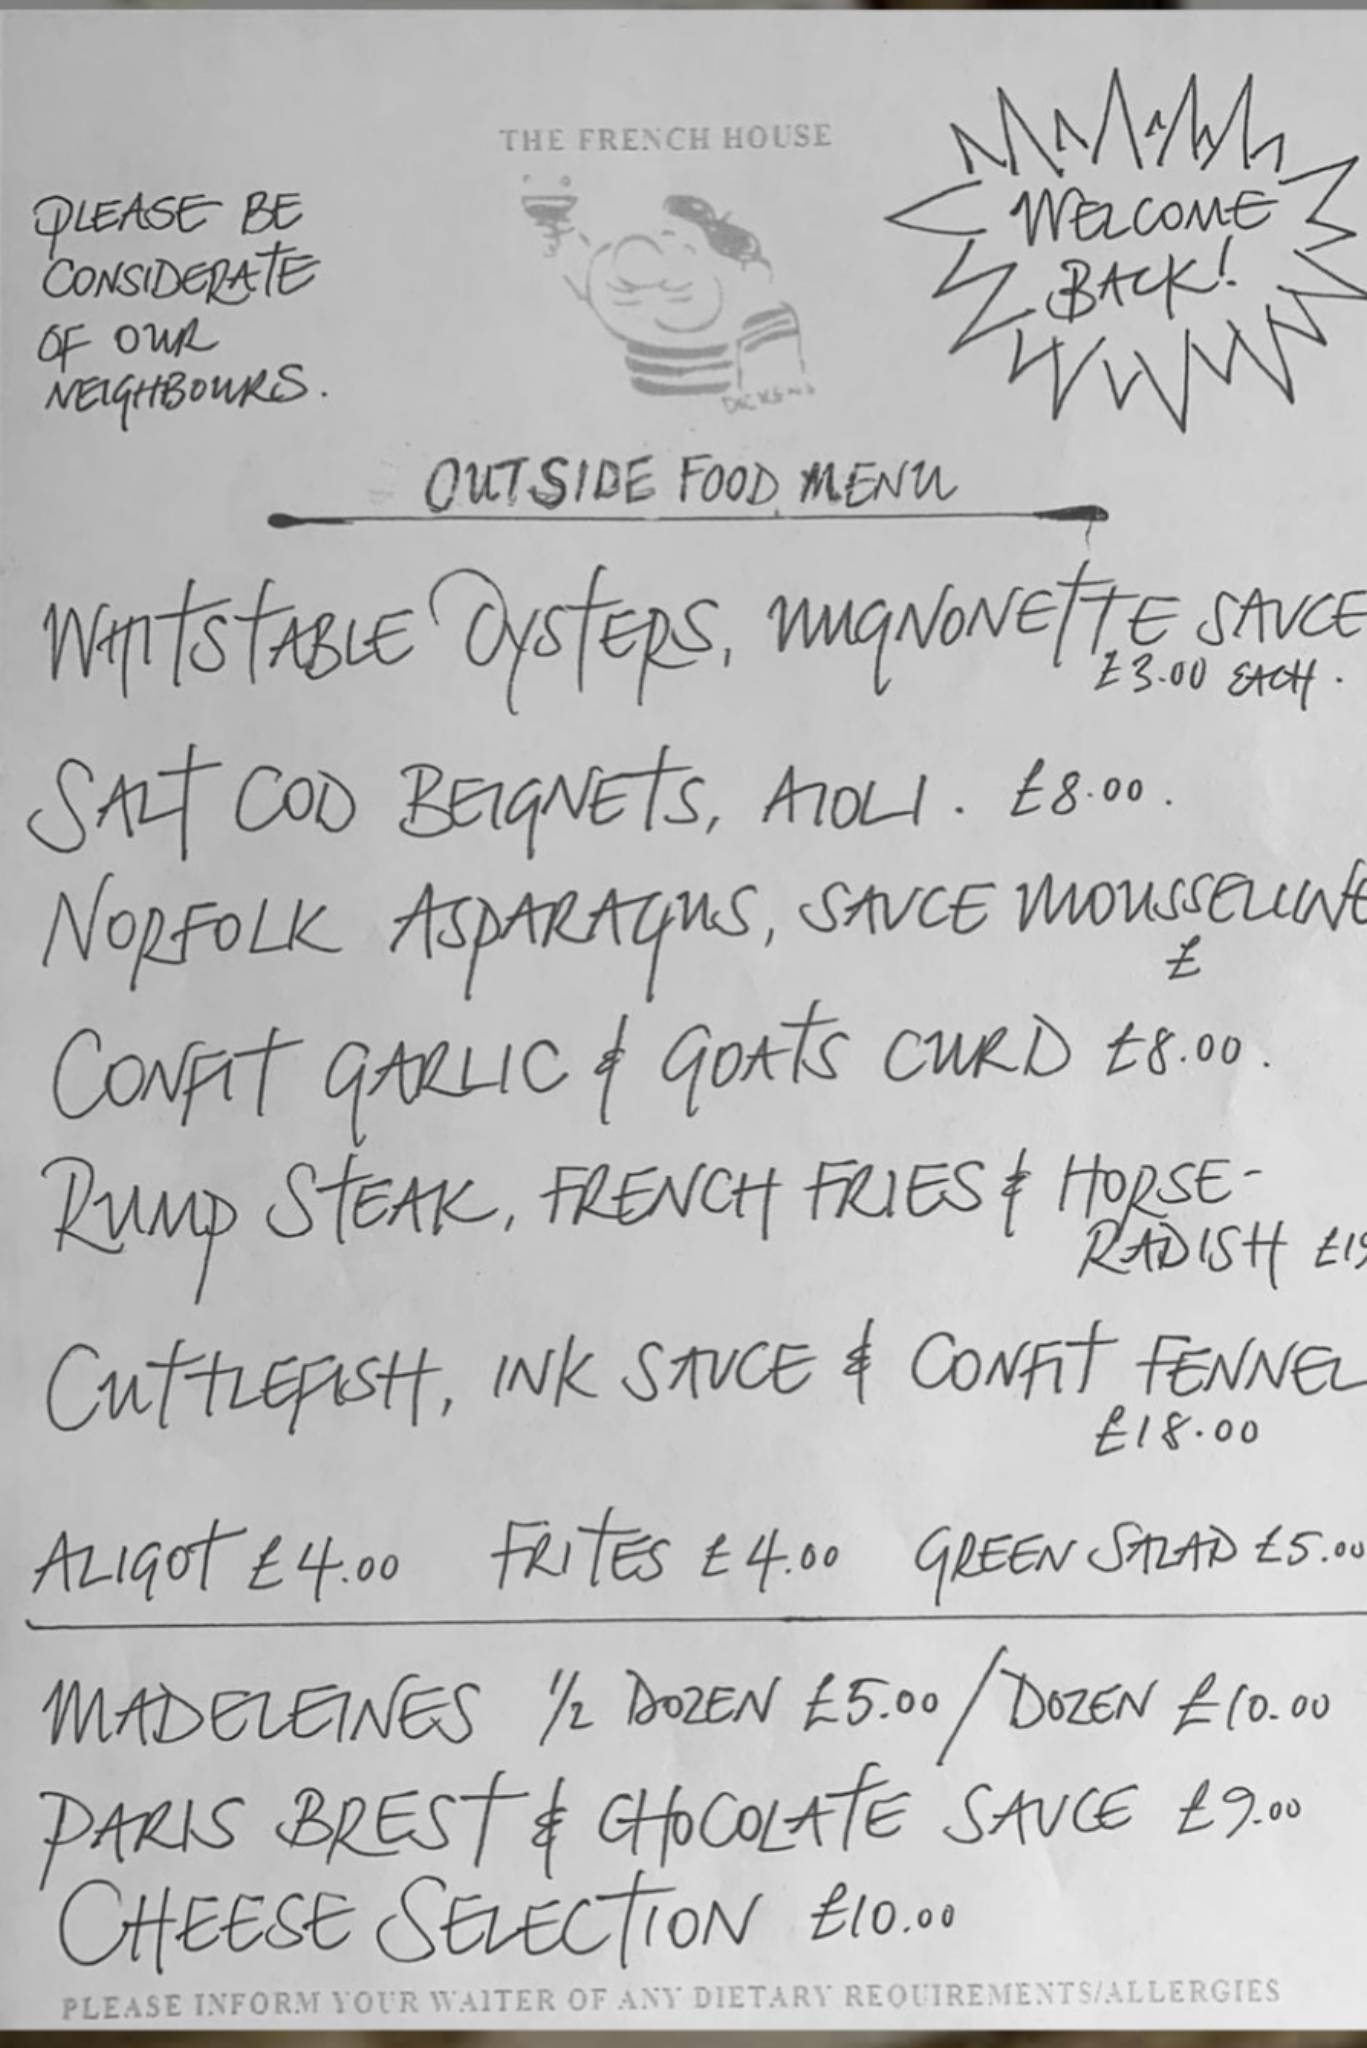 THE FRENCH HOUSE
PLEASE BE
CONSIDERATE
OF OUR
NEIGHBOURS.
WELCOME
BACK!
OUTSIDE FOOD MENU
WHITSTABLE OYSTERS, MIGNONETTE SAUCE
£3.00 EACH.
SALT COD BEIGNETS, AIOLI. £8.00.
NORFOLK ASPARAGUS, SAUCE MOUSSELINE
£
CONFIT GARLIC & GOATS CURD £8.00.
RUMP STEAK, FRENCH FRIES & HORSE-
RADISH £19
CUTTLEFISH, INK SAUCE & CONFIT FENNEL
£18.00
ALIGOT £4.00 FRITES £4.00 GREEN SALAD £5.00
MADELEINES 1/2 DOZEN £5.00/DOZEN £10.00
PARIS BREST & CHOCOLATE SAUCE £9.00
CHEESE SELECTION £10.00
PLEASE INFORM YOUR WAITER OF ANY DIETARY REQUIREMENTS/ALLERGIES